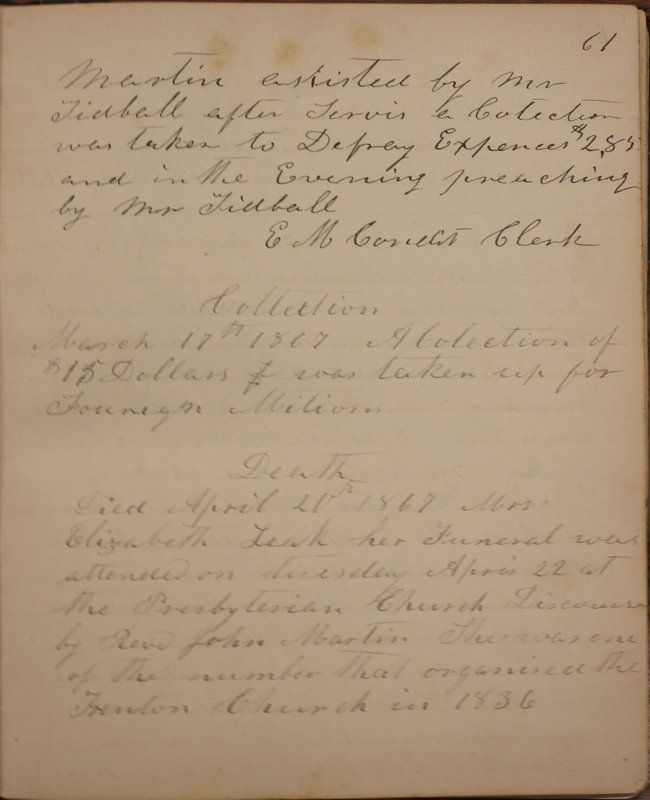 61
Martin assisted by Mr
Tidball after Servis a Colection
was taken to Defray Expences $2,85
and in the Evening preaching
by Mr Tidball
E M Condit Clerk
Collection
March 17th 1867 A Colection of
$15 Dollars was taken up for
Death
Died April 20th 1867 Mrs
Elizabeth Leak her Funeral was
attended on tuesday April 22 at
the Presbyterian Church Discourse
by Revd John Martin She was one
of the number that organised the
Trenton Church in 1836